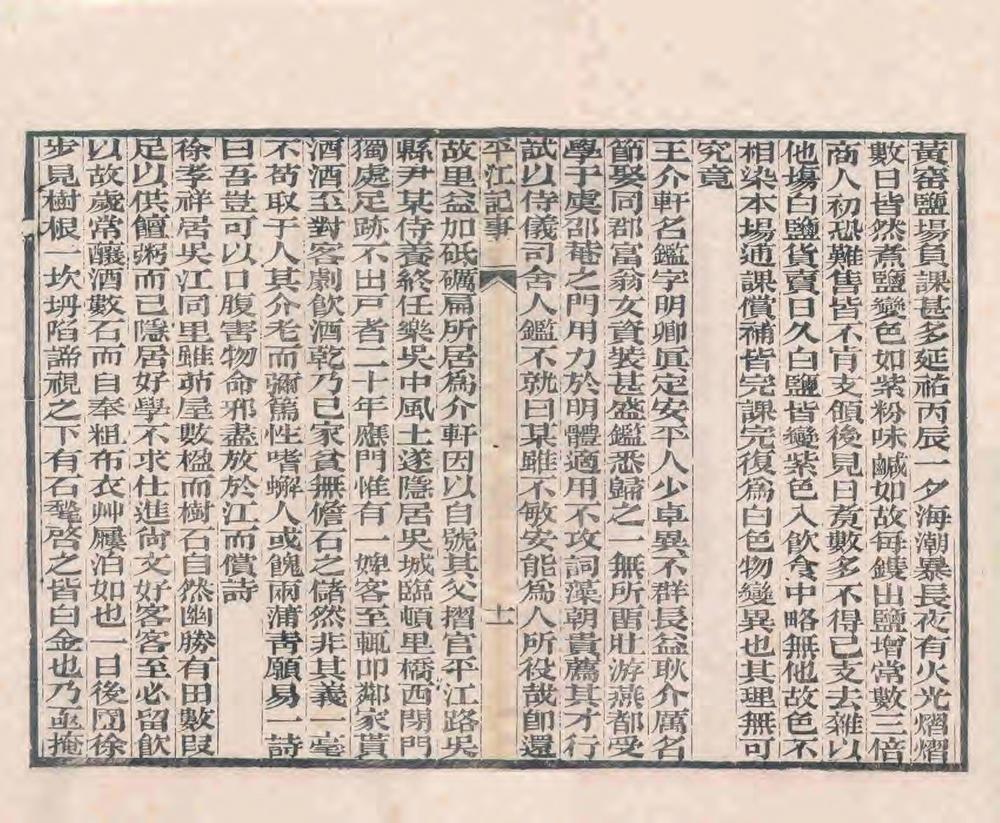 黃窑鹽場負課甚多延祐丙辰一夕海潮暴長夜有火光熠熠
數日皆然煮鹽變色如紫粉味鹹如故每鐖出鹽增常數三倍
商人初恐難售皆不肯支領後見日煮數多不得已支去雜以
他塲白鹽貨賣日久白鹽皆變紫色入飮食中略無他故色不
相染本場逋課償補皆完課完復爲白色物變異也其理無可
究竟
王介軒名鑑字明卿眞定安平人少卓異不群長益耿介厲名
節娶同郡富翁女資裝甚盛鑑悉歸之一無所畱壯游燕都受
學于虞邵菴之門用力於明體適用不攻詞藻朝貴薦其才行
試以侍儀司舍人鑑不就曰某雖不敏安能爲人所役哉卽還
平江記事 十一
故里益加砥礪扁所居爲介軒因以自號其父摺官平江路吳
縣尹某侍養終任樂吳中風土遂隱居吳城臨頓里橋西閉門
獨處足跡不出戸者二十年應門惟有一婢客至輒叩鄰家貰
酒酒至對客劇飮酒乾乃已家貧無儋石之儲然非其義一毫
不苟取于人其介老而彌篤性嗜蠏人或餽兩蒲靑願易一詩
曰吾豈可以口腹害物命邪盡放於江而償詩
徐孝祥居吳江同里雖茆屋數楹而樹石自然幽勝有田數段
足以供饘粥而已隱居好學不求仕進尙文好客客至必留飮
以故歲常釀酒數石而自奉粗布衣艸屨泊如也一日後園徐
步見樹根一坎坍陷諦視之下有石甃啓之皆白金也乃亟掩